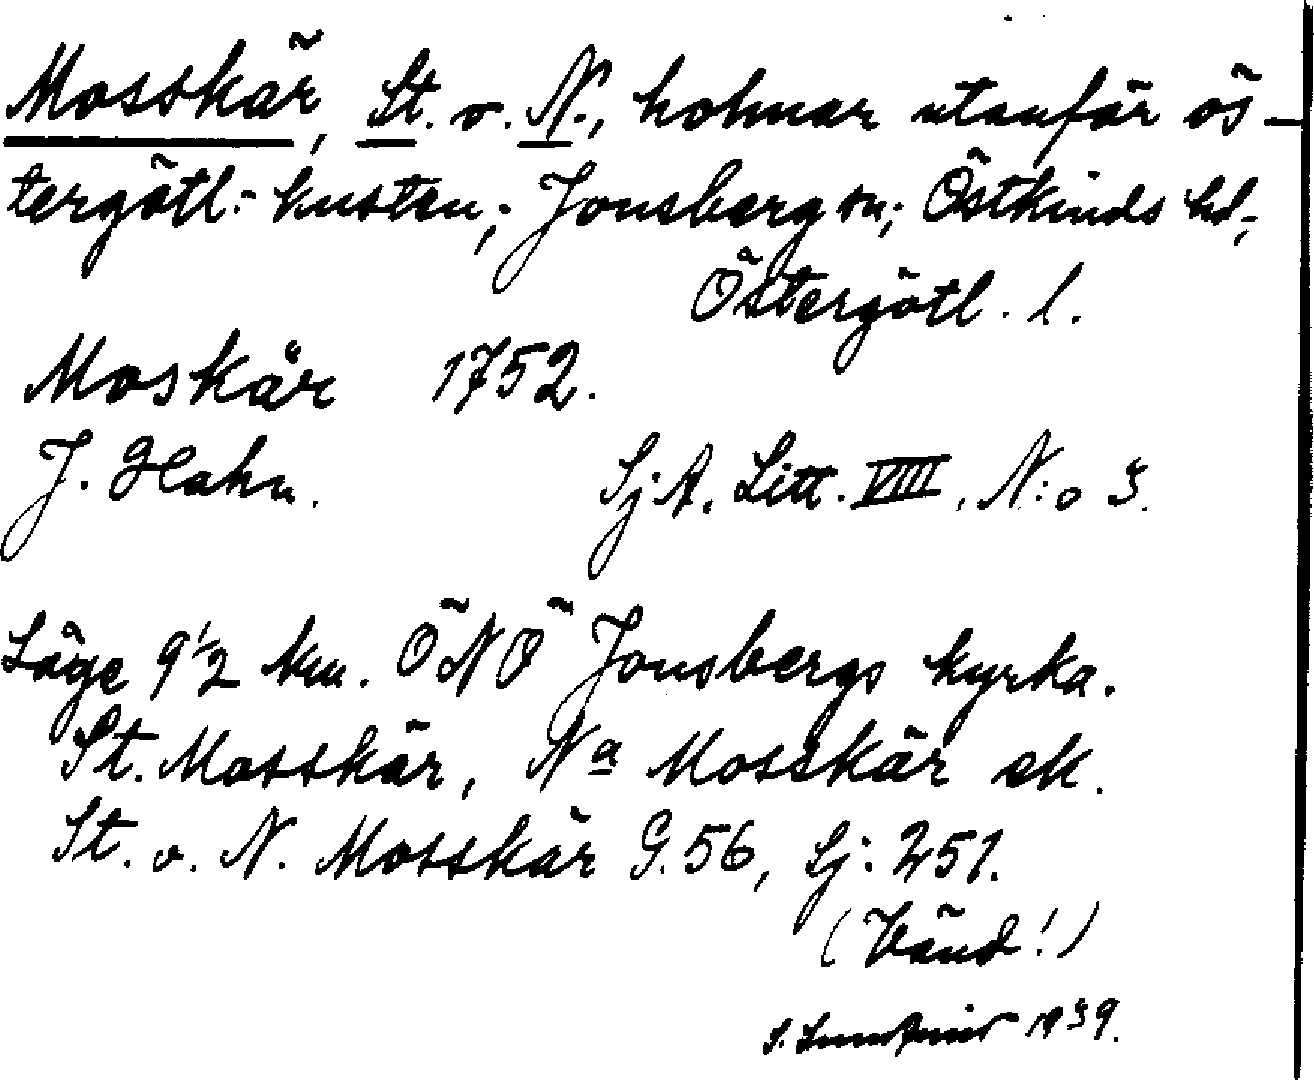 Mosskär, St. o. N., holmar utanför ös-
tergötl:- kusten; Jonsberg sn; Östkinds hd;
Östergötl. l.
Moskär 1752.
J. Hahn. Sj.A. Litt. VIII, N:o 3.
Läge 9 1/2 km. ÖNÖ Jonsbergs kyrka.
St. Mosskär, Na Mosskär ek.
St. o. N. Mosskär G. 56, Sj: 251.
(Vänd!)
S. 1939.